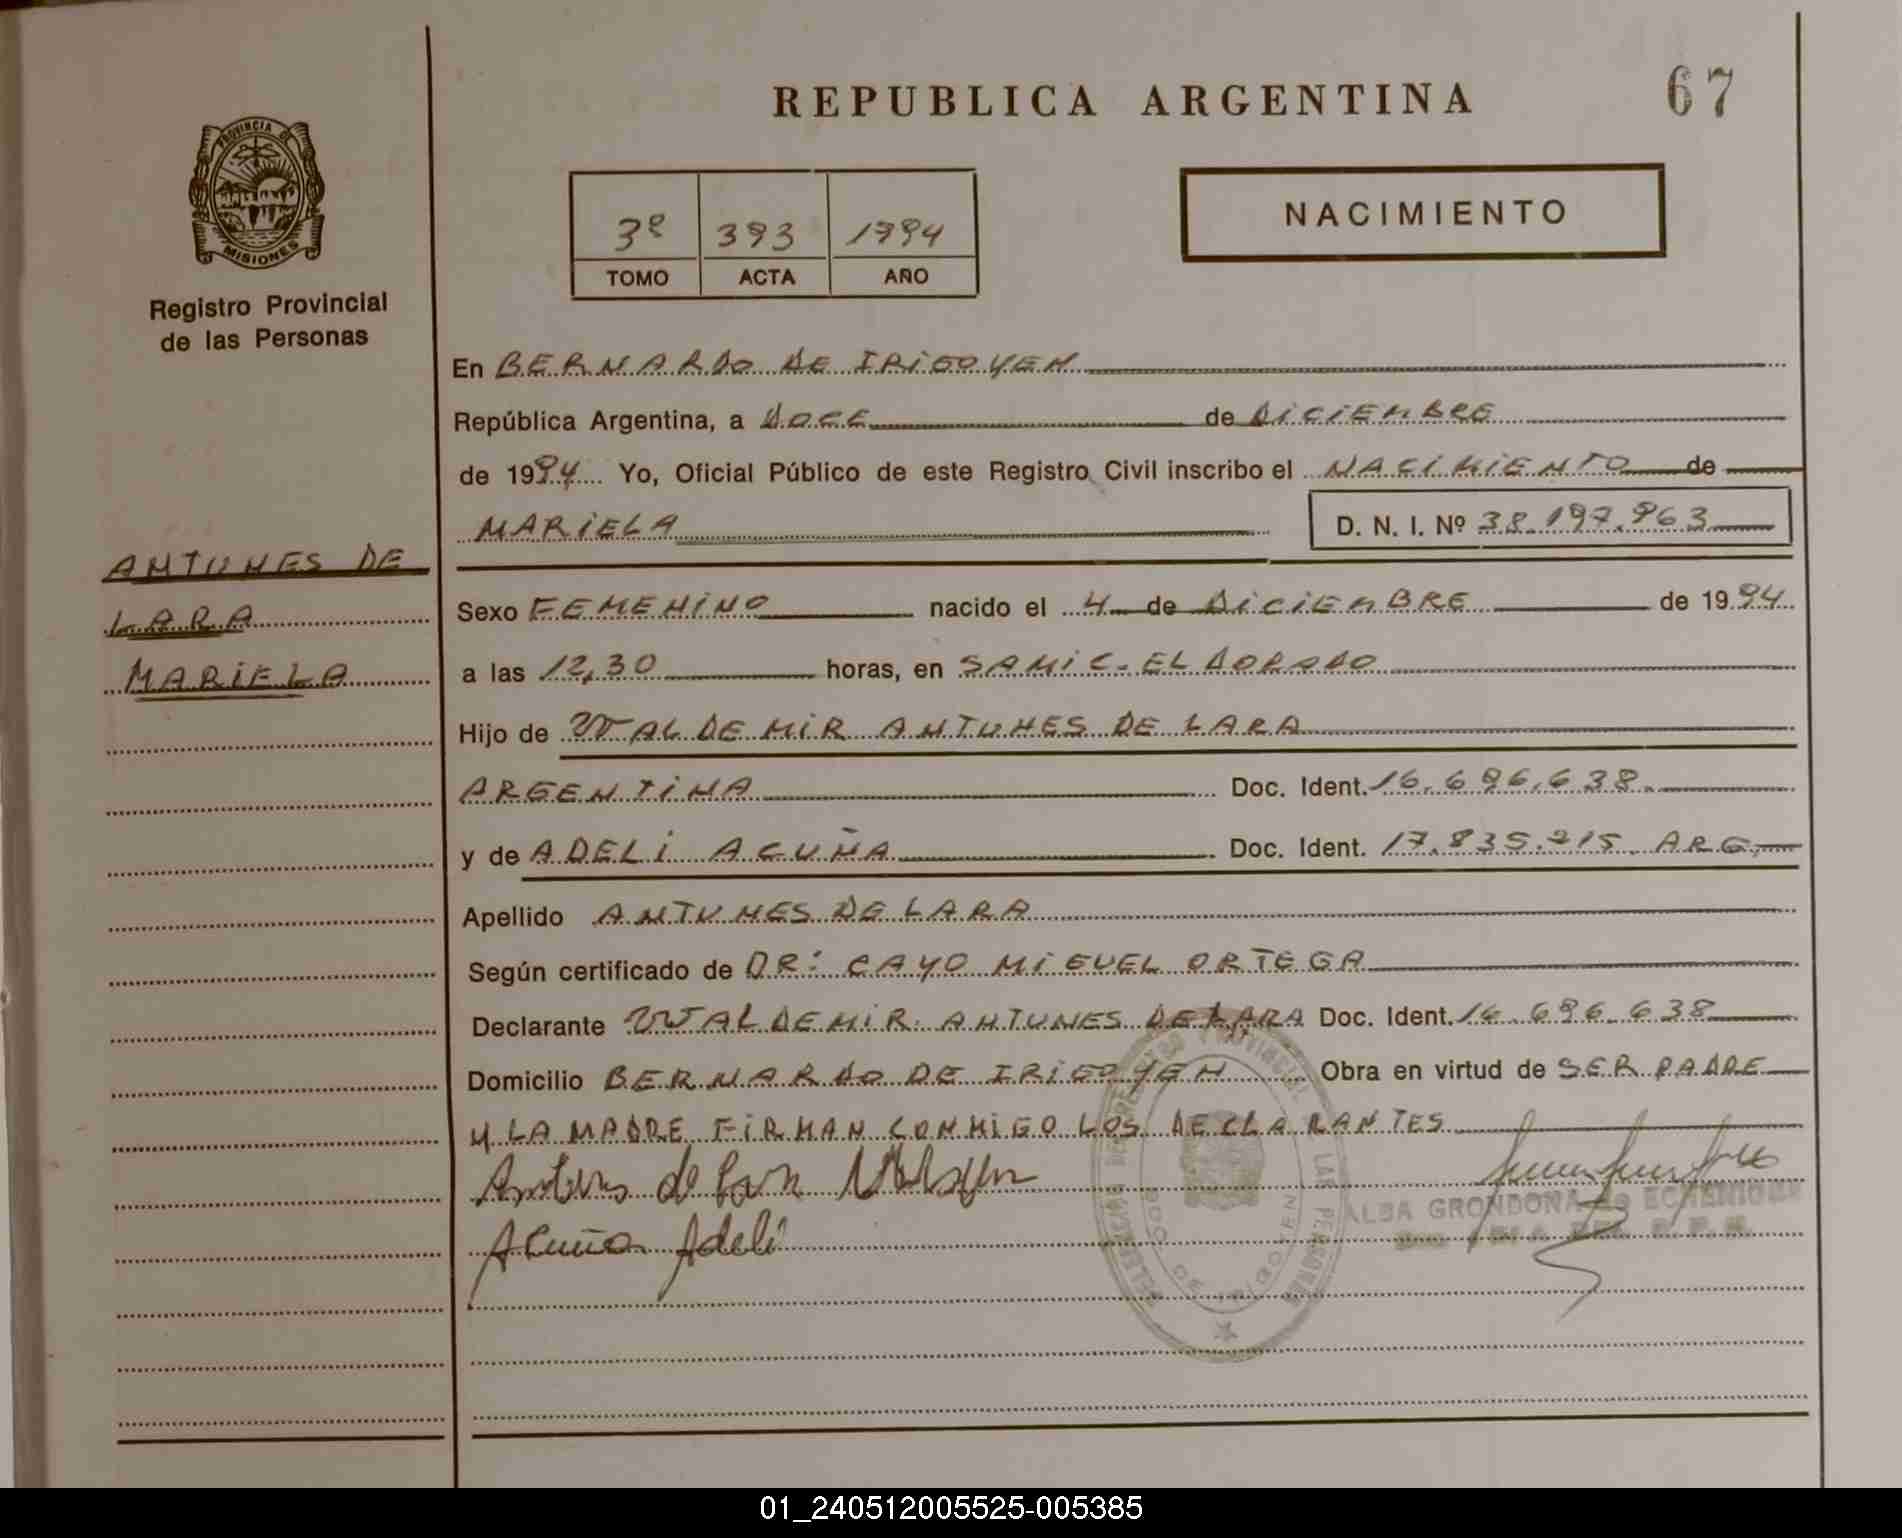 REPUBLICA ARGENTINA
67
PROVINCIA DE
MISIONES
Registro Provincial
de las Personas
3º 393 1994
TOMO ACTA AÑO
NACIMIENTO
En BERNARDO DE IRIGOYEN
República Argentina, a DOCE de DICIEMBRE
de 1994 Yo, Oficial Público de este Registro Civil inscribo el NACIMIENTO de
MARIELA D. N. I. Nº 38.197.963
ANTUNES DE
LARA
MARIELA
Sexo FEMENINO nacido el 4 de DICIEMBRE de 1994
a las 12,30 horas, en SAMIC-ELDORADO
Hijo de WALDEMIR ANTUNES DE LARA
ARGENTINA Doc. Ident. 16.696.638.
y de ADELI ACUÑA Doc. Ident. 17.835.215. ARG.
Apellido ANTUNES DE LARA
Según certificado de DR: CAYO MIGUEL ORTEGA
Declarante WALDEMIR. ANTUNES DE LARA Doc. Ident. 16.696.638
Domicilio BERNARDO DE IRIGOYEN Obra en virtud de SER PADRE
Y LA MADRE FIRMAN CONMIGO LOS DECLARANTES
Antunes de Lara
Acuña Adeli
REGISTRO PROVINCIAL
DE LAS PERSONAS
BDO. DE IRIGOYEN
ALBA GRONDONA de ECHENIQUE
01_240512005525-005385